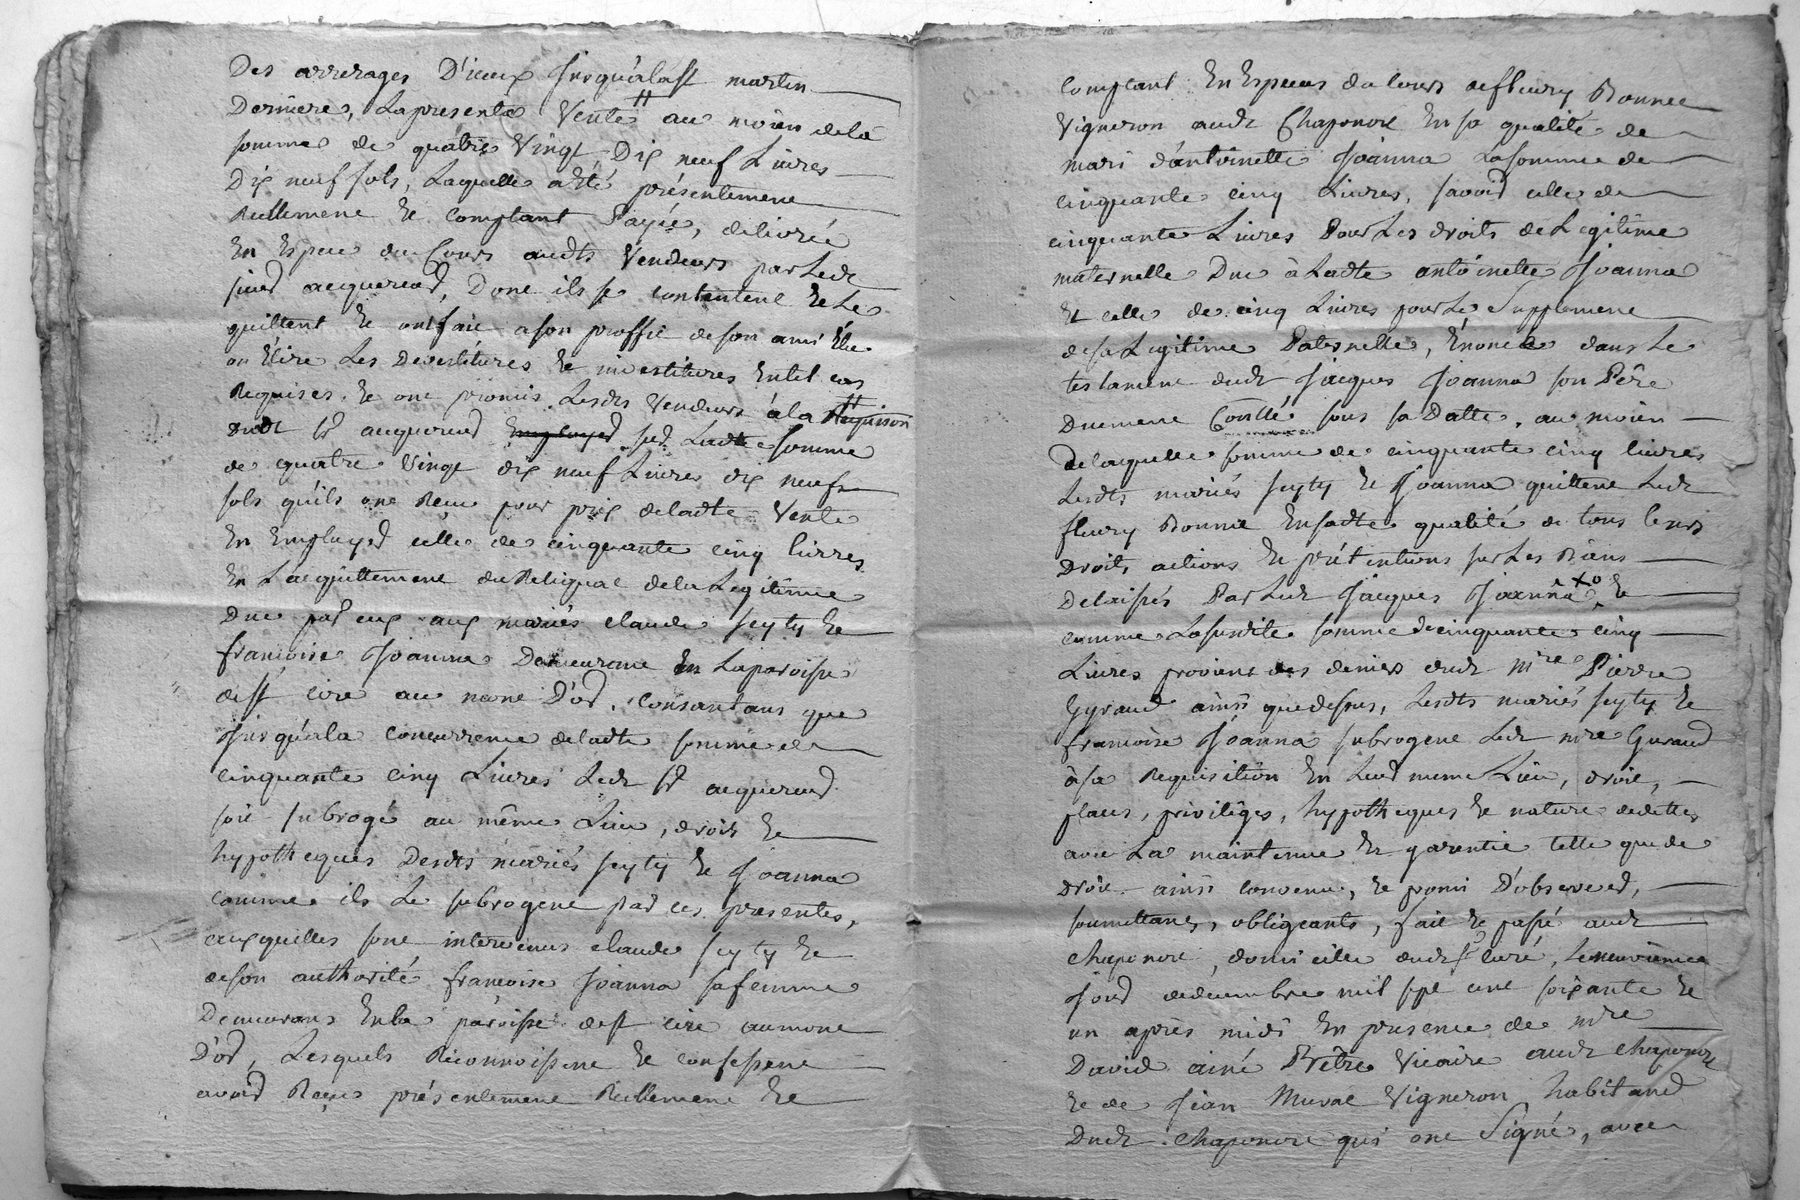 Des arrerages D'iceux Jusqu'a la st martin
Derniere, La presente Vente au moïen de la
somme de quatre Vingt Dix neuf Livres
Dix neuf sols, Laquelle a été présentement
Reellement et comptant Payée, delivrée
En Espece du Cours auxdts Vendeurs par Ledt
sieur acquereur, Dont ils se contentent et Le
quittent et ont fait a son proffit de son ami Élu
ou Élire Les Devestitures et investitures En tel cas
Requises. et ont promis Lesdts Vendeurs à la Requision
dudt sr acquereur Employer sur Ladte somme
de quatre Vingt dix neuf Livres dix neuf
sols qu'ils ont Reçu pour prix de ladte Vente
En Employer celle de cinquante cinq livres
En L'acquittement du Reliquat de la Legitime
Due par eux aux mariés claude seyty et
francoise Joanna Demeurant En La paroisse
de st cire au mont D'or, consentans que
Jusqu'a la concurrence de ladte somme de
cinquante cinq Livres Ledt sr acquereur
soit subrogé au même Lieu, droit et
hypotheques Desdts mariés seyty et Joanna
comme ils Le subrogent par ces presentes,
auxquelles sont intervenus claude seyty et
de son authorité francoise Joanna sa femme
Demeurans En la paroisse de st cire au mont
D'or, Lesquels Reconnoissent et confessent
avoir Reçu présentement Reellement et
comptant En Especes du cours de fleury Bonnet
Vigneron audt Chaponost En sa qualité de
mari d'antoinette Joanna La somme de
cinquante cinq Livres, savoir celle de
cinquante Livres Pour Les droits de Legitime
maternelle Due à Ladte antoinette Joanna
Et celle de cinq Livres pour Le Supplement
de sa Legitime Paternelle, Énoncé dans Le
testament dudt Jacques Joanna son Père
Duement Contlé sous sa Datte, au moïen
de laquelle somme de cinquante cinq livres
Lesdts mariés seyty et Joanna quittent Ledt
fleury Bonnet En sadte qualité de tous leurs
Droits actions et prétentions sur Les Biens
Delaissés Par Ledt Jacques Joanna et
comme La susdite somme de cinquante cinq
Livres provient des deniers dudt mre Pierre
Gyraud ainsi que dessus, Lesdts mariés seyty et
francoise Joanna subrogent Ledt mre Guraud
à sa Requisition En Leur meme Lieu, droit,
places, privilèges, hypotheques et nature de dettes
avec La maintenue et garentie telle que de
droit ainsi convenu, et promi D'observer,
soumettants, obligeants, fait et passé audt
chaponost, domicille dudt sr curé, Le neuvième
Jour de decembre mil sept cent soixante et
un après midi En presence de mre
David ainé Prêtre Vicaire audt chaponost
et de Jean Murat Vigneron habitand
Dudt chaponost qui ont Signé, avec